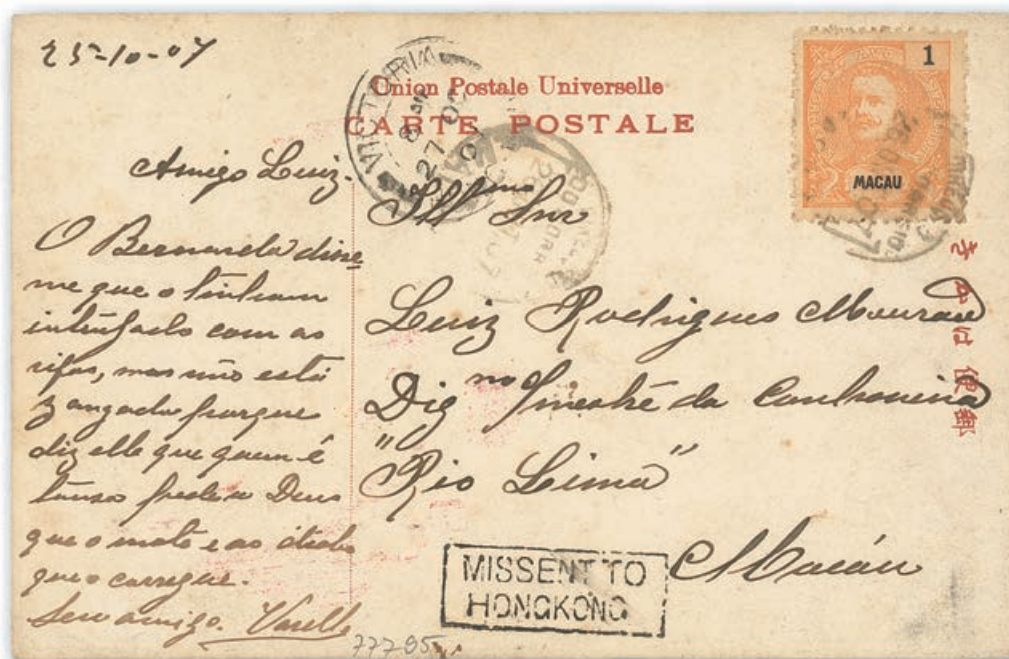 25-10-07
Union Postale Universelle
CARTE POSTALE
1
MACAU
Amigo Luiz.
O Bernardo disse
me que o tinham
com as
rifas, mas não está
zangado porque
diz elle que quem é
tanso pede a Deus
que o mate e ao diabo
que o carregue.
Seu amigo. Varella
Ill mo Snr
Luiz Rodrigues Mourão
Dig mo da Canhoneira
"Rio Lima"
Macáu
MISSENT TO
HONGKONG
VICTORIA
27 OC
07
77795
郵便はかき